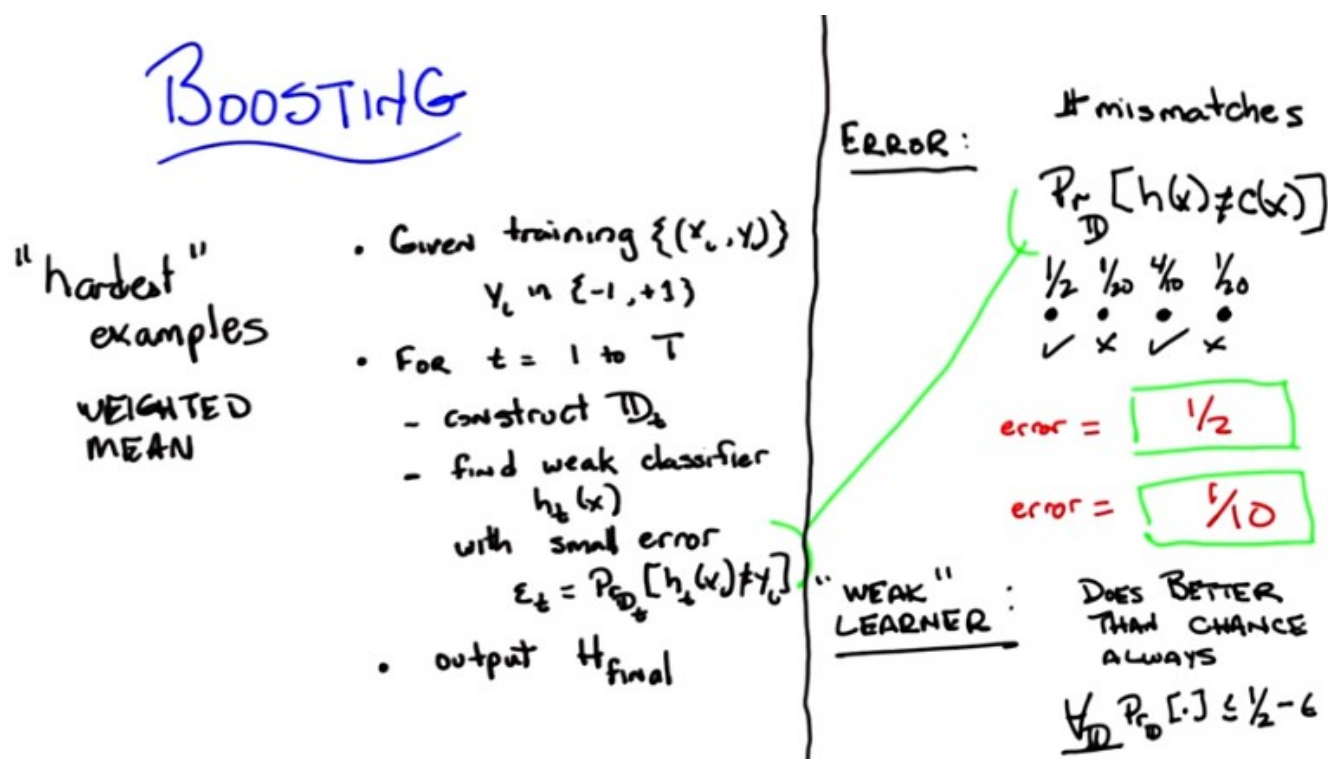 BOOSTING
"hardest"
examples
WEIGHTED
MEAN
• Given training {(xᵢ, yᵢ)}
yᵢ in {-1, +1}
• For t = 1 to T
- construct Dₜ
- find weak classifier
hₜ(x)
with small error
εₜ = Pr_Dₜ [hₜ(xᵢ) ≠ yᵢ]
• output H_final
ERROR:
# mismatches
Pr_D [h(x) ≠ c(x)]
1/2 1/20 4/10 1/20
• • • •
✓ x ✓ x
error = 1/2
error = 1/10
"WEAK"
LEARNER :
DOES BETTER
THAN CHANCE
ALWAYS
∀_D Pr_D [·] ≤ 1/2 - ε